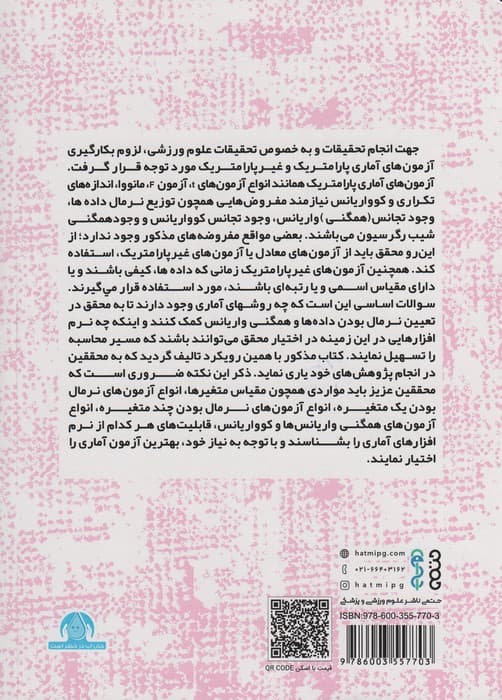 جهت انجام تحقیقات و به خصوص تحقیقات علوم ورزشی، لزوم بکارگیری
آزمون‌های آماری پارامتریک و غیرپارامتریک مورد توجه قرار گرفت.
آزمون‌های آماری پارامتریک همانند انواع آزمون‌های t، آزمون F، مانووا، اندازه‌های
تکراری و کوواریانس نیازمند مفروض‌هایی همچون توزیع نرمال داده ها،
وجود تجانس (همگنی) واریانس، وجود تجانس کوواریانس و وجود همگنی
شیب رگرسیون می‌باشند. بعضی مواقع مفروضه‌های مذکور وجود ندارد؛ از
این‌رو محقق باید از آزمون‌های معادل یا آزمون‌های غیرپارامتریک، استفاده
کند. همچنین آزمون‌های غیرپارامتریک زمانی که داده ها، کیفی باشند و یا
دارای مقیاس اسمی و یا رتبه‌ای باشند، مورد استفاده قرار می‌گیرند.
سوالات اساسی این است که چه روشهای آماری وجود دارند تا به محقق در
تعیین نرمال بودن داده‌ها و همگنی واریانس کمک کنند و اینکه چه نرم
افزارهایی در این زمینه در اختیار محقق می‌توانند باشند که مسیر محاسبه
را تسهیل نمایند. کتاب مذکور با همین رویکرد تالیف گردید که به محققین
در انجام پژوهش‌های خود یاری نماید. ذکر این نکته ضروری است که
محققین عزیز باید مواردی همچون مقیاس متغیرها، انواع آزمون‌های نرمال
بودن یک متغیره، انواع آزمون‌های نرمال بودن چند متغیره، انواع
آزمون‌های همگنی واریانس‌ها و کوواریانس، قابلیت‌های هر کدام از نرم
افزارهای آماری را بشناسند و با توجه به نیاز خود، بهترین آزمون آماری را
اختیار نمایند.
hatmipg.com
۰۲۱-۶۶۴۰۳۱۶۲
hatmipg
حتمی ناشر علوم ورزشی و پزشکی
ISBN:978-600-355-770-3
9 786003 557703
قیمت با اسکن QR CODE
جهان آب در خطر است